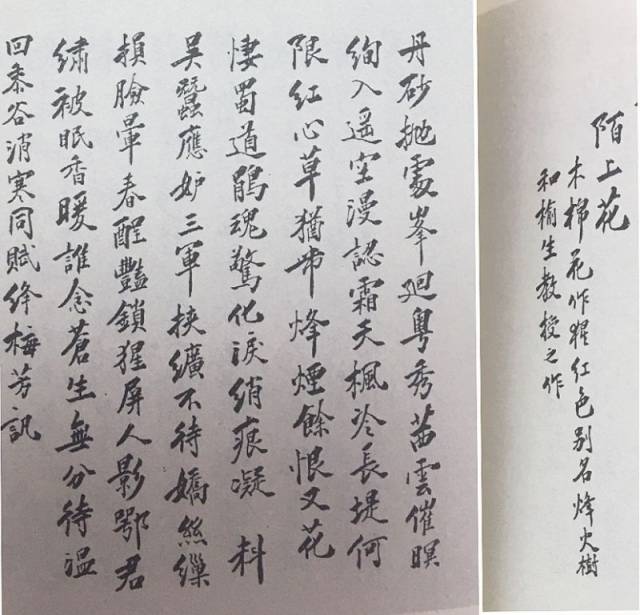 陌上花
木棉花作猩红色别名烽火樹
和榆生教授之作
丹砂抛處峯廻粤秀茜雲催暝
絢入遥空漫認霜天楓冷長堤何
限红心草猶帶烽煙餘恨又花
悽蜀道鵑魂驚化淚綃痕凝 料
吴蠶應妒三軍挾纊不待嬌絲繅
損臉暈春酲豔鎖猩屏人影鄂君
繡被眠香暖誰念蒼生無分待温
回黍谷消寒同賦絳梅芳訊